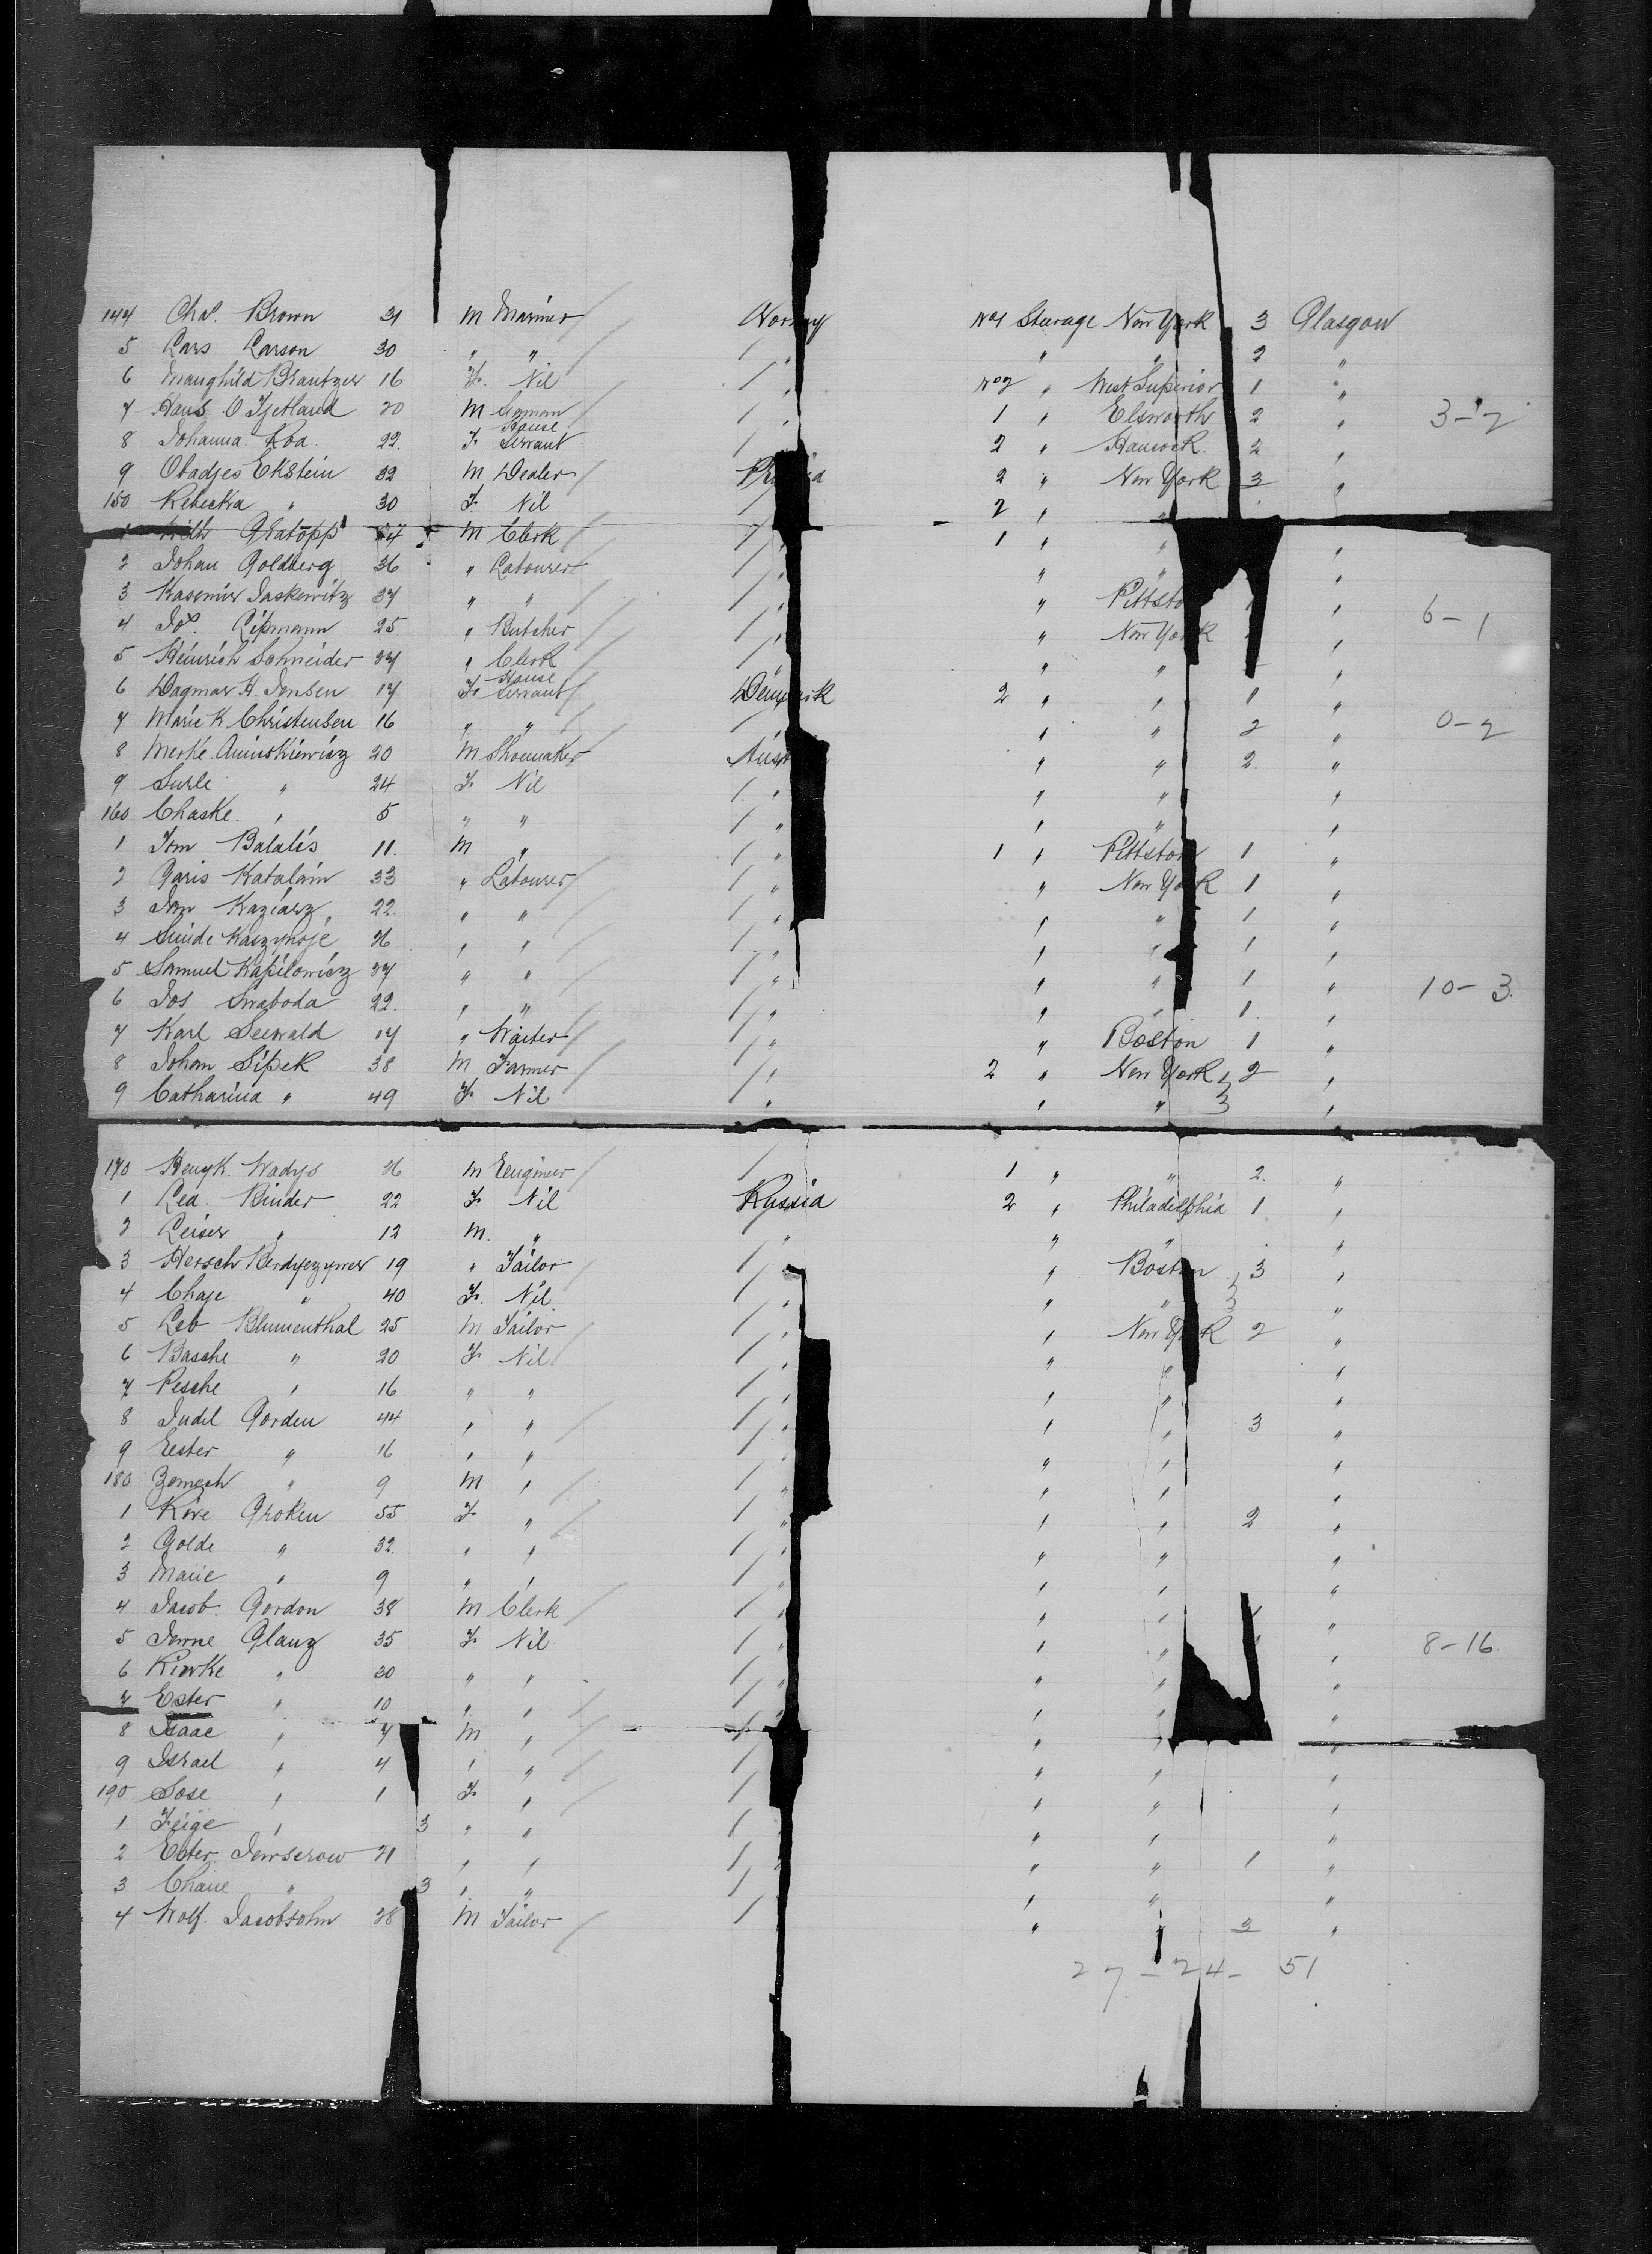 144 Chas. Brown 31 M Mariner Norway No 1 Steerage New York 3 Glasgow
5 Lars Larson 30 " " / " " " 2 "
6 Brantzer 16 F. Nil / " No 2 " West Superior 1 "
7 Hans O. Tjetland 20 M Seaman / " 1 " Elsworth 2 " 3-2
8 Johanna Roa. 22. F House Servant / " 2 " Hancock. 2 "
9 Obadjes Ekstein 32 M Dealer 2 " New York 3 "
150 Rebecka " 30 F Nil / 2 " "
1 Gratopp M Clerk / " 1 " " "
2 Johan Goldberg 36 " Labourer / " " " "
3 Kasemir Jaskewitz 37 " " / " " "
4 Jos. Lipmann 25 " Butcher / " " New York " 6-1
5 Heinrich Schneider 37 " Clerk / " " " "
6 Dagmar H. Jensen 17 F House Servant Denmark 2 " " 1 "
7 Marie K. Christensen 16 " " / " " 2 " 0-2
8 Merke 20 M Shoemaker " " 2. "
9 Surle " 24 F Nil / " " " "
160 Chaske. " 5 " " / " " " "
1 Balalis 11. M " / " 1 " Pittston 1 "
2 Garis Katalain 33 " Labourer / " " New York 1 "
3 Jan 22. " " / " " " 1 "
4 26 " " / " " " 1 "
5 Samuel Kapilowisz 37 " " / " " " 1 " 10-3.
6 Jos Swaboda 22. " " / " " " 1. "
7 Karl Seewald 17 " Waiter / " " Boston 1 "
8 Johan Sipek 38 M Farmer / " 2 " New York 2 "
9 Catharina " 49 F Nil " " " "
170 Henyk. Wadys 26 M Engineer / 1 " " 2. "
1 Lea. Binder 22 F Nil Russia 2 " Philadelphia 1 "
2 Leiser " 12 M. " " " " "
3 Hersch 19 " Tailor / " " Boston 3 "
4 Chaje " 40 F. Nil / " " " "
5 Leo Blumenthal 25 M Tailor / " " New York 2 "
6 Basche " 20 F Nil / " " " "
7 Pesche " 16 " " / " " " "
8 Judel Gorden 44 " " / " " " 3 "
9 Eester " 16 " " / " " " "
180 " 9 M " / " " " "
1 Kive Groken 55 F " / " " " 2 "
2 Golde " 32. " " / " " " "
3 " 9 " " / " " " "
4 Jacob. Gordon 38 M Clerk / " " " "
5 Glanz 35 F Nil / " " " " 8-16.
6 " 30 " " / " " " "
7 Ester " 10 " " / " " " "
8 Isaac " 7 M " / " " "
9 Israel " 4 " " / " " "
190 Sose " 1 F " / " " "
1 Feige " 3 " " / " " "
2 Ester 21 " " / " " 1 "
3 Chaie " 3 " " / " " "
4 Wolf. Jacobsohn 28 M Tailor / " " 3 "
27-24- 51